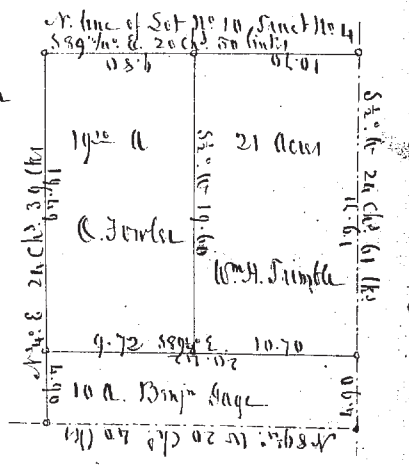 N. line of Lot No 10, Tract No 4
S 89 3/4° E. 20 Chs 50 links
9.80
10.70
19 10 A
C. Fowler
21 Acres
Wm H. Trimble
N 3/4° E 24 Chs 39 lks
19.49
4.90
S 1/2° W 19.60
S 1/2° W 24 Chs 61 lks
9.72 S 89 3/4° E. 10.70
20.42
10 A. Benjn Gage
N 89 3/4° W 20 Chs 40 lks